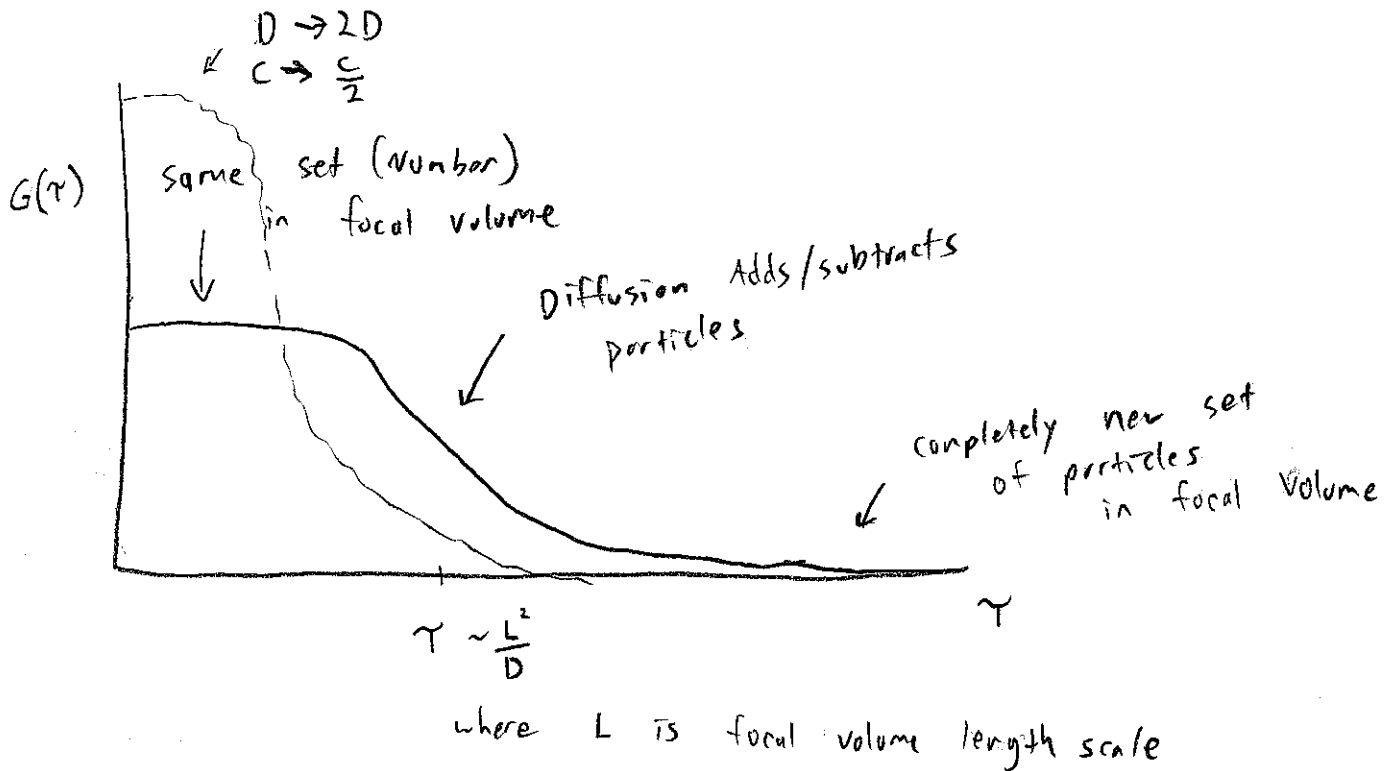 D → 2D
C → C/2
G(τ)
same set (Number)
in focal volume
Diffusion Adds/subtracts
particles
completely new set
of particles
in focal volume
τ ~ L²/D
τ
where L is focal volume length scale